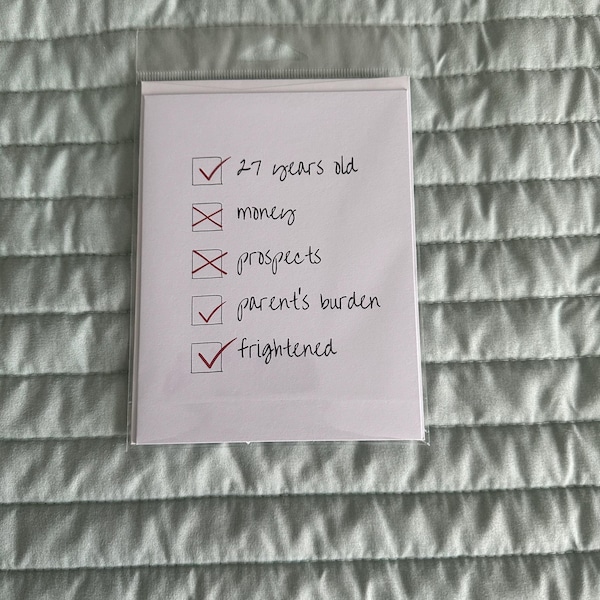 27 years old
money
prospects
parent's burden
frightened